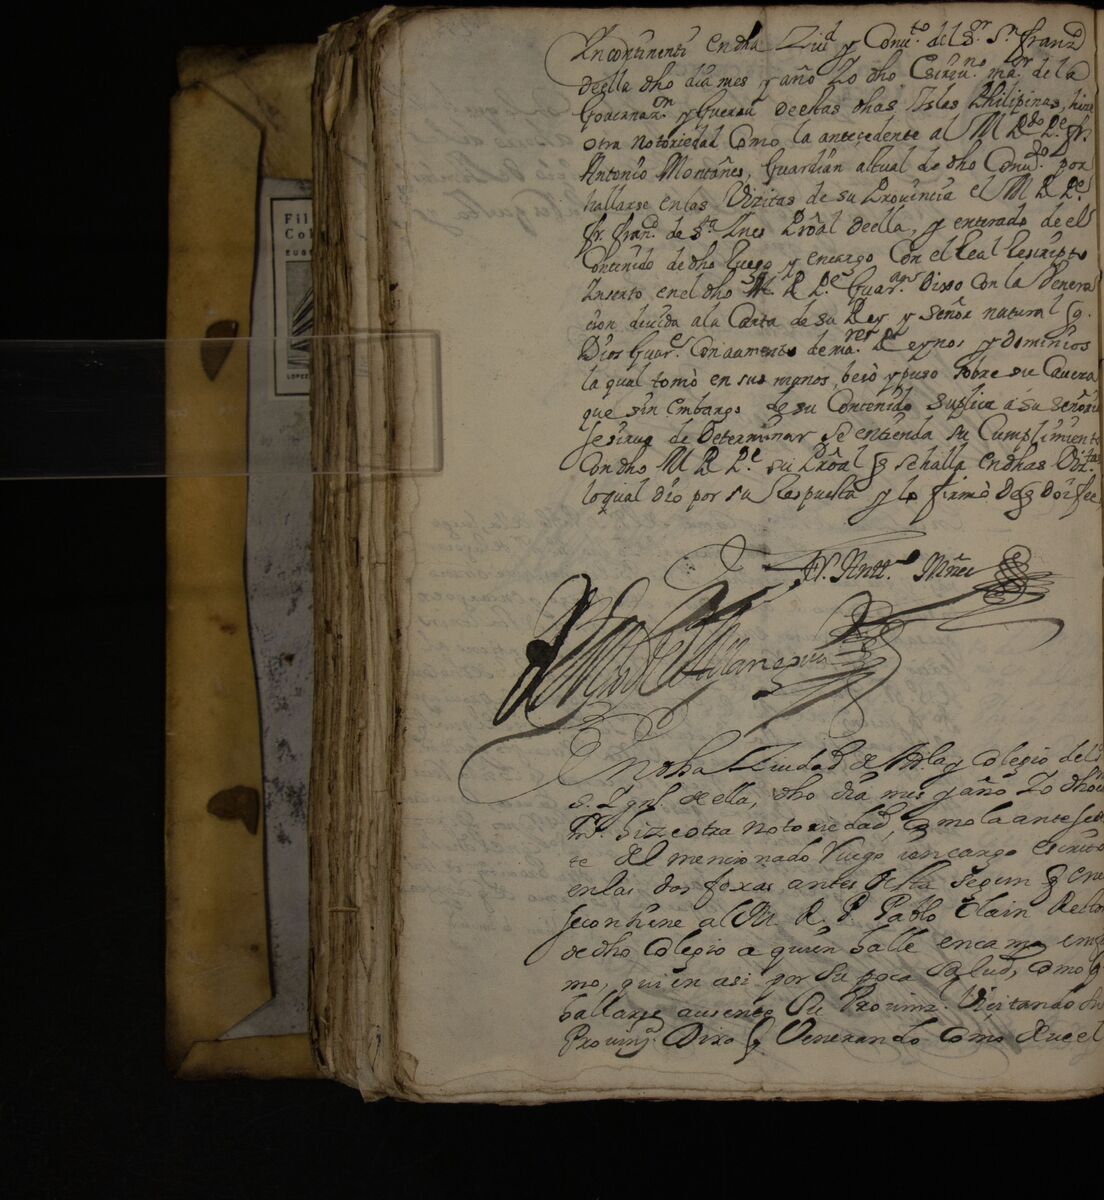 Fil
Col
EUGE
LOPEZ
Incontinenti en dha Ziud y Conuto. del Sr. Sn. franco
de ella dho dia mes y año Yo dho Escriuno. maor. de la
Gouernazon. y Guerra de estas dhas Islas Philipinas, hize
otra notoriedad como la antecedente al M R do Pe fr.
Antonio Montañes, Guardian actual de dho Conuto. por
hallarse en las Vizitas de su Prouincia el M R Pe.
fr. franco. de Sta Ines Prôal de ella, y enterado de el
Contenido de dho Ruego y encargo Con el Real Rescripto
Inserto en el dho M. R Pe. Guaran. Dixo con la Venera
cion deuida a la Carta de su Rey y Señor natural q.
Dios Guare. Con aumento de mares. Reynos y dominios
la qual tomò en sus manos, besò y puso sobre su Caueza
que sin embargo de su Contenido suplica â su señoria
se sirua de Determinar se entienda su Cumplimiento
Con dho M R Pe. su Prôal q se halla en dhas Vizitas
lo qual dio por su Respuesta y lo firmò de q doi fee
Fr. Antto. Mñes
En dha Ziudad de Mla y Colegio del Sr
S. Ygnso. de ella, dho dia mes y año Yo dho
hize otra notoriedad, como la antesede
te del mencionado Ruego y encargo escrito
en las dos foxas antes de esta segun q en e
se contiene al M. R. P. Pablo Clain Retor
de dho Colegio a quien halle en cama enfer
mo, quien asi por su poca salud, como p
hallarse ausente su Prouinl. Vicitando su
Prouina. Dixo q Venerando como deue el